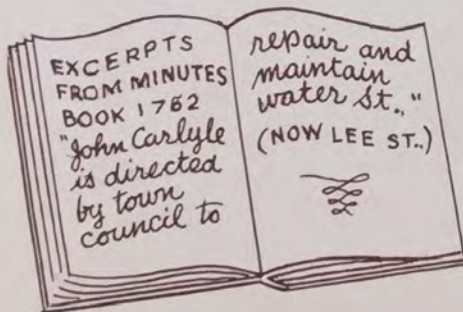 EXCERPTS
FROM MINUTES
BOOK 1762
"John Carlyle
is directed
by town
council to
repair and
maintain
water St.,"
(NOW LEE ST..)